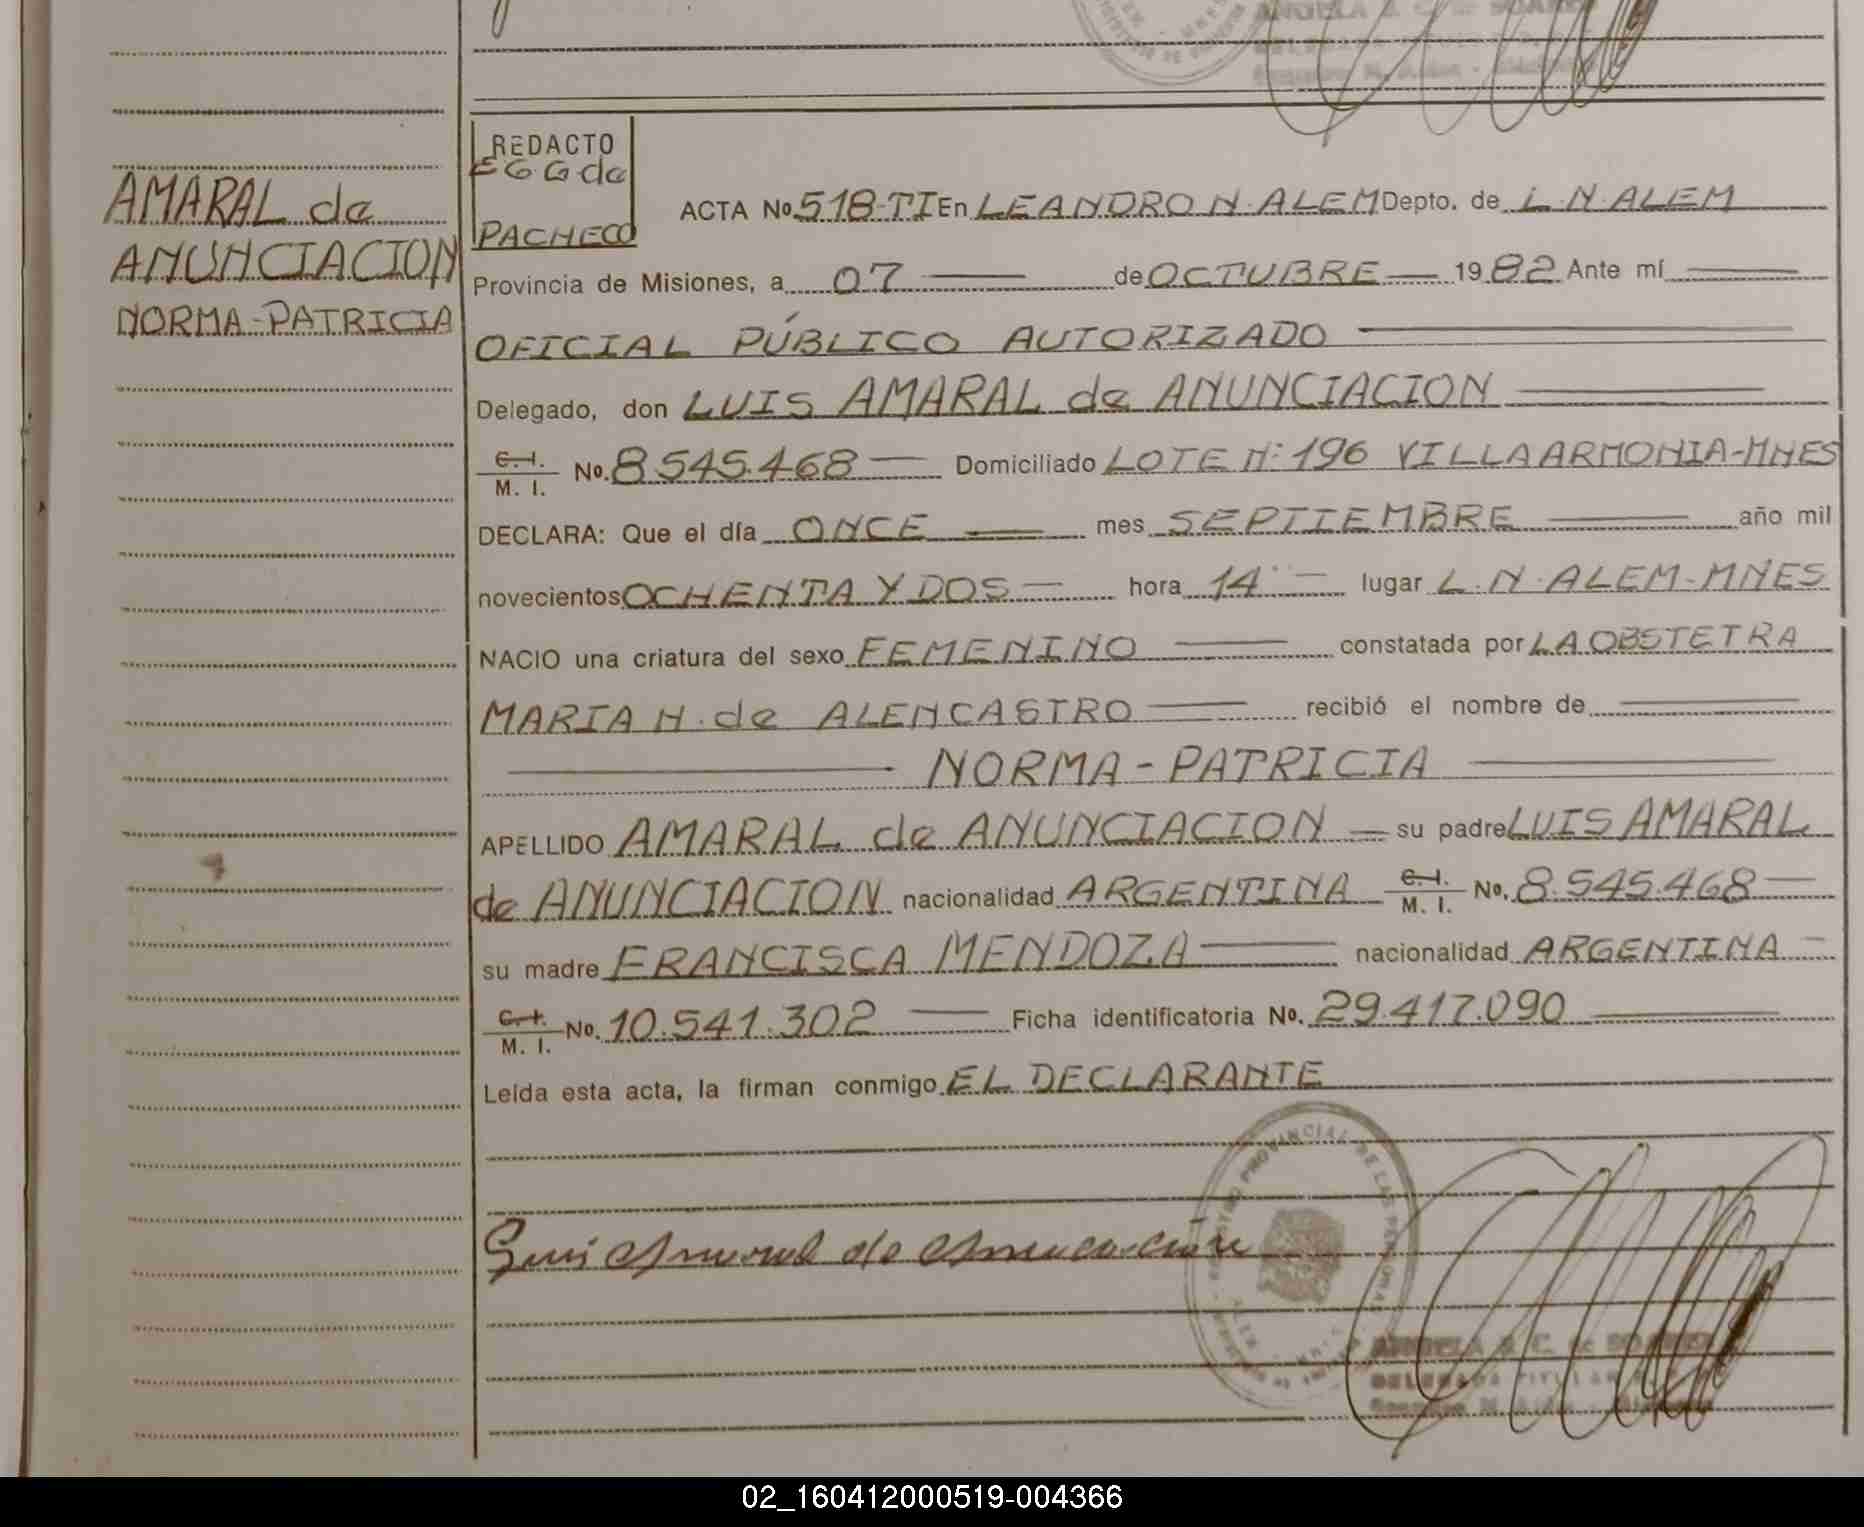 ANGELA S. C. de SOAREZ
AMARAL de
ANUNCIACION
NORMA-PATRICIA
REDACTO
E G G de
PACHECO
ACTA No 518-TI En LEANDRO N. ALEM Depto. de L.N. ALEM
Provincia de Misiones, a 07 de OCTUBRE 1982 Ante mí
OFICIAL PÚBLICO AUTORIZADO
Delegado, don LUIS AMARAL de ANUNCIACION
C. I. / M. I. No. 8.545.468 Domiciliado LOTE Nº 196 VILLA ARMONIA-MNES
DECLARA: Que el día ONCE mes SEPTIEMBRE año mil
novecientos OCHENTA Y DOS hora 14 lugar L.N. ALEM-MNES
NACIO una criatura del sexo FEMENINO constatada por LA OBSTETRA
MARIA H. de ALENCASTRO recibió el nombre de
NORMA-PATRICIA
APELLIDO AMARAL de ANUNCIACION su padre LUIS AMARAL
de ANUNCIACION nacionalidad ARGENTINA C. I. / M. I. No. 8.545.468
su madre FRANCISCA MENDOZA nacionalidad ARGENTINA
C. I. / M. I. No. 10.541.302 Ficha identificatoria No. 29.417.090
Leída esta acta, la firman conmigo EL DECLARANTE
REGISTRO PROVINCIAL DE LAS PERSONAS
Luis Amaral de Anunciación
DELEGADA TITULAR
02_160412000519-004366